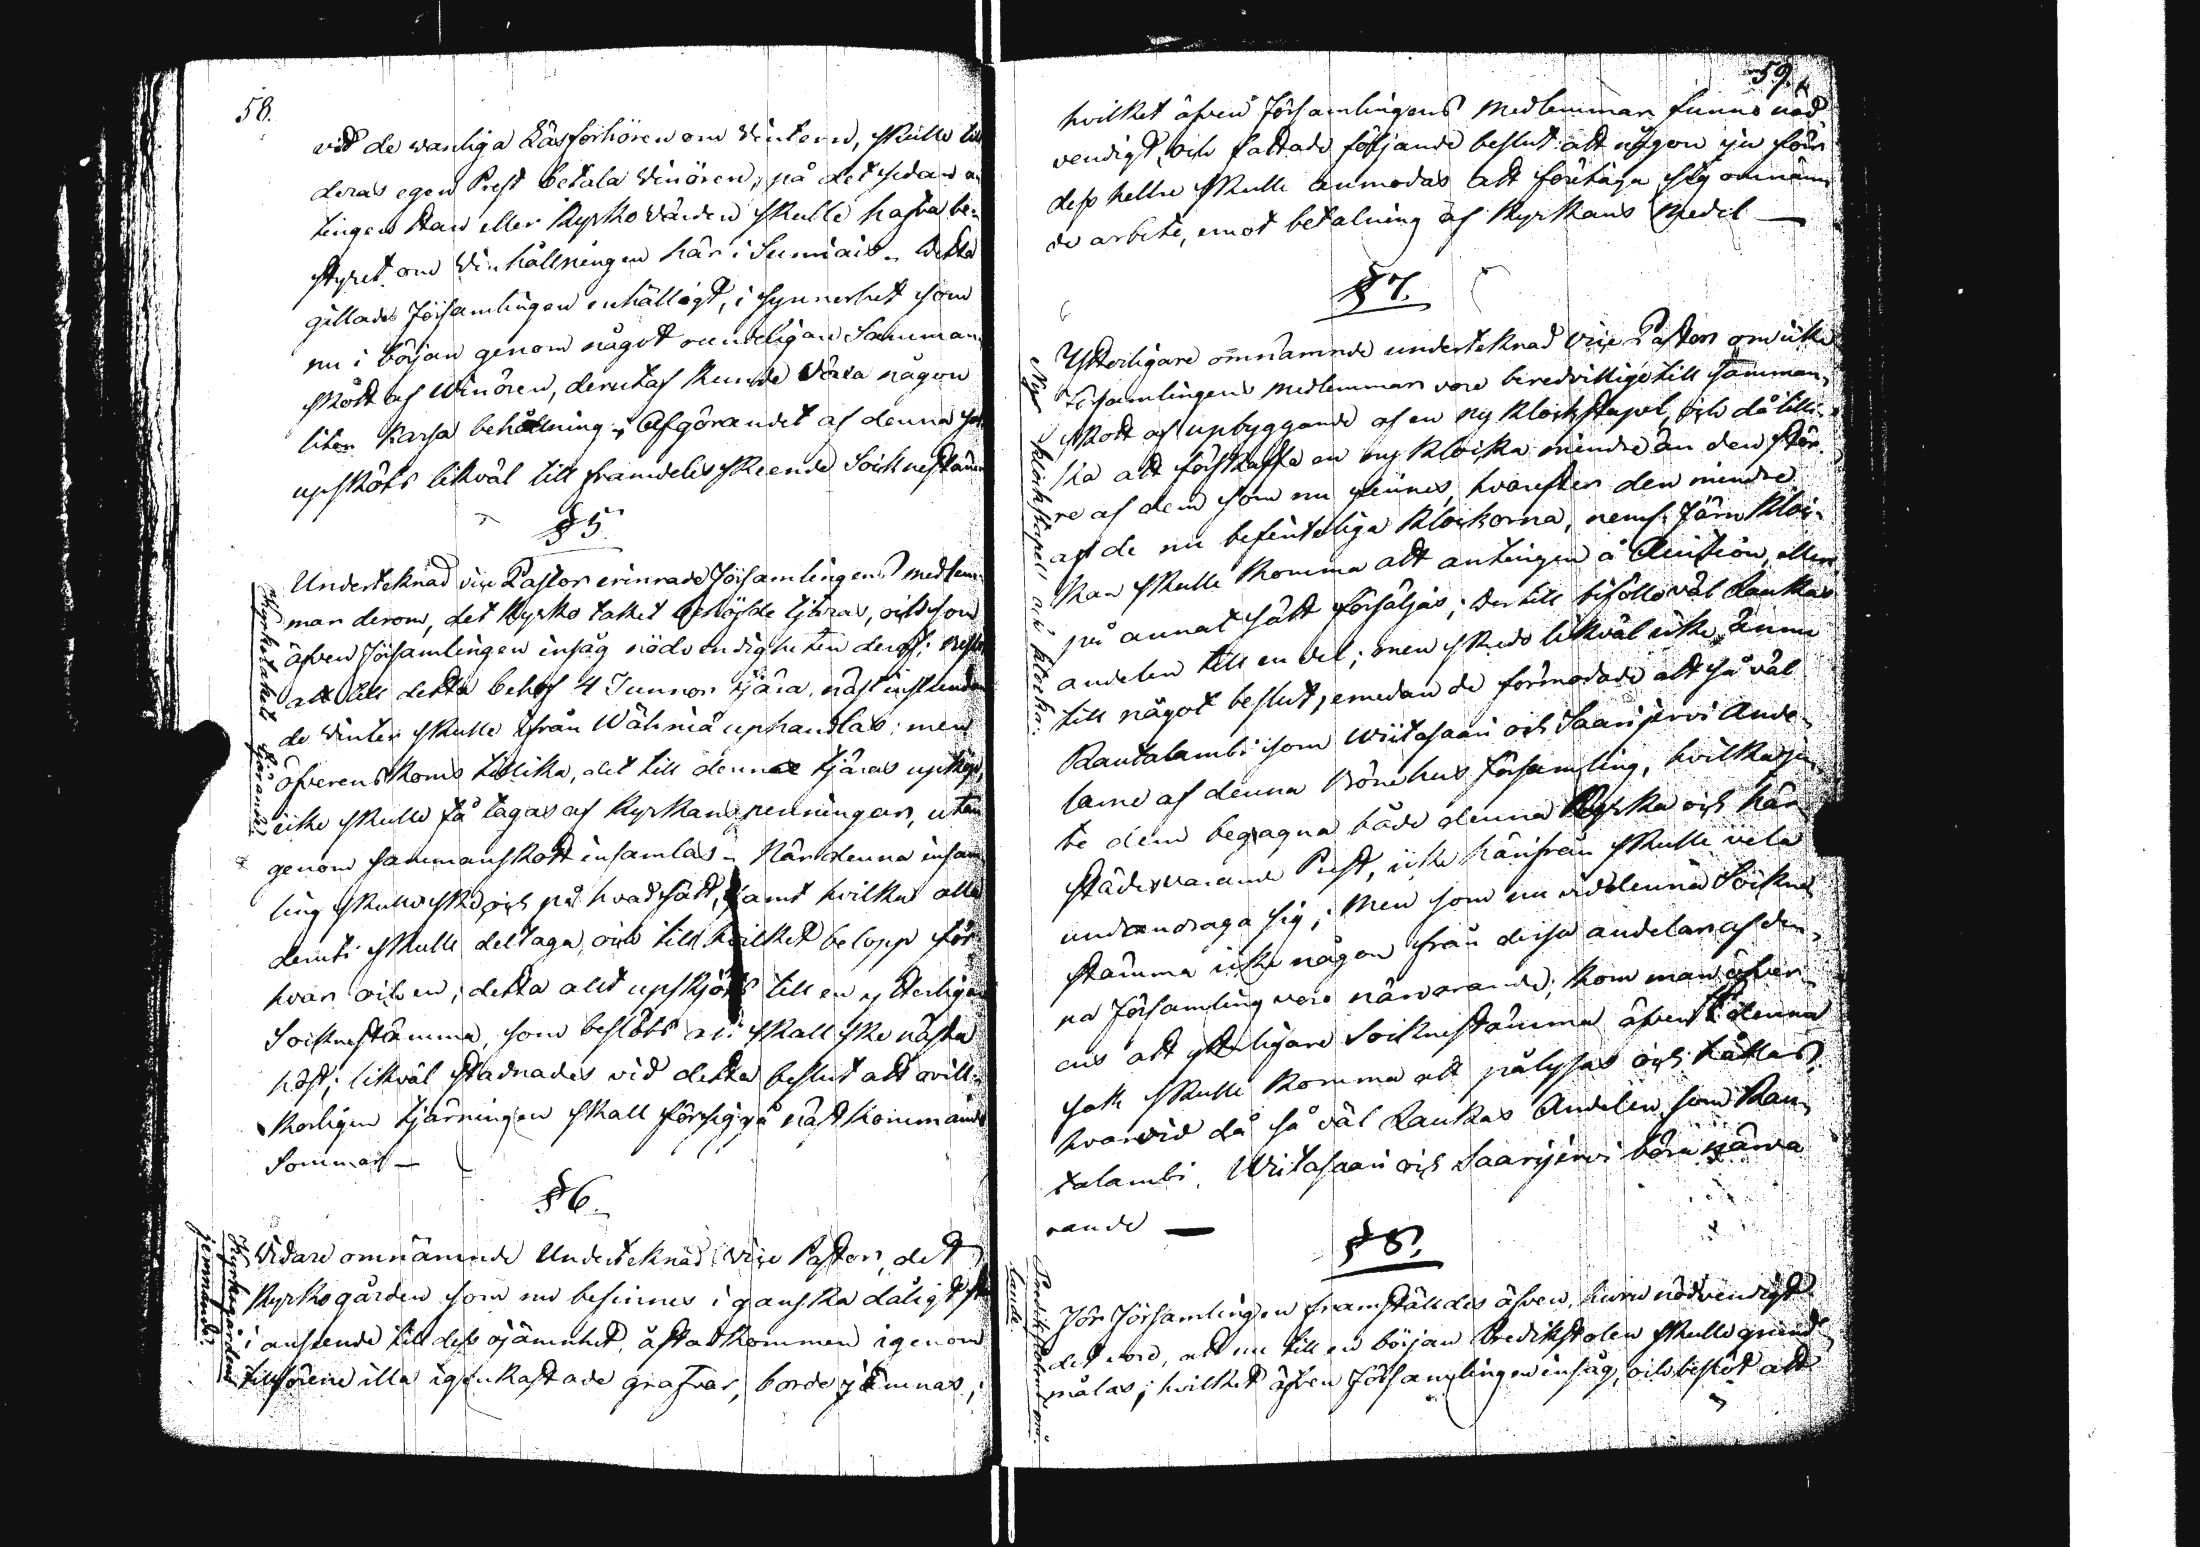 58.
vid de wanliga Läsförhören om Vintern, skulle till
deras egen Prest betala Vinören, på det sedan an
tingen Han eller Kyrko Värden skulle hafva be-
styret om Vinhållningen här i Sumiais. Detta
gillade Församlingen enhälligt, i synnerhet som
nu i början genom något rundeligare Samman-
skott af Winören, derutaf kunde vara någon
liten Kassa behållning; Afgörandet af denna sak
upsköts likväl till framdeles skeende Sockne Stämma
§ 5.
Kyrkotakets tjärande.
Undertecknad vice Pastor erinrade Församlingens medlem-
mar derom, det Kyrko taket behöfde tjäras, och som
äfven Församlingen insåg nödvendigheten deraf;
att till detta behof 4 Tunnor tjära, nästinstundan
de Vinter skulle ifrån Wähniä uphandlas; men
öfverenskoms tillika, det till denna tjäras upköp,
icke skulle få tagas af Kyrkans penningar, utan
genom sammanskott insamlas. När denna insam
ling skulle ske och på hvad sätt, samt hvilka alla
deruti skulle deltaga, och till hvilket belopp för
hvar och en; detta allt upskjöts till en ytterligare
Socknestämma, som beslöts att skall ske nästa
höst; likväl stadnades vid detta beslut att ovill-
korligen tjärningen skall försiggå nästkommande
Sommar —
§ 6.
Kyrkogården
jemnande.
Vidare omnämnde Undertecknad Vice Pastor, det
Kyrkogården som nu befinnes i ganska dåligt
i anseende till dess ojämnhet, åstadkommen igenom
tillförene illa igenkastade grafvar, borde jämnas;
59.
hvilket äfven Församlingens medlemmar funno nöd
vendigt, och fattade följande beslut: att någon ju förr
dess hellre skulle anmodas att företaga sig omnämn
de arbete, emot betalning af Kyrkans Medel —
§ 7.
Ny Klockstapel och klocka.
Ytterligare omnämnde undertecknad vice Pastor om icke
Församlingens medlemmar vore beredvillige till samman-
skott af upbyggande af en ny Klockstapel, och då tilli-
ka att förskaffa en ny Klocka mindre än den stör-
re af dem som nu finnes, hvarefter den mindre
af de nu befinteliga Klockorna, neml. Järn Kloc-
kan skulle komma att antingen å Auction, eller
på annat sätt försäljas; dertill biföllo väl Laukas
andelen till en del; men skredo likväl icke ännu
till något beslut, emedan de förmodade att så väl
Rautalambi som Wiitasaari och Saarijervi Ande-
larne af denna Bönehus Församling, hvilka
te dem begagna både denna Kyrka och här-
städes varande Prest, icke härifrån skulle vela
undandraga sig; Men som nu vid denna Sockne
stämma icke någon från dessa andelar af den-
na Församling vore närvarande; kom man öfver-
ens att ytterligare Socknestämma äfven i denna
sak skulle komma att pålysas och hållas,
hvarvid då så väl Laukas Andelen som Rau-
talambi, Wiitasaari och Saarijervi böra närva
rande —
§ 8.
Predikstolens må-
lande.
För Församlingen framställdes äfven, huru nödvendigt
det vore, att nu till en början Predikstolen skulle grund-
målas; hvilket äfven Församlingen insåg, och beslöt att